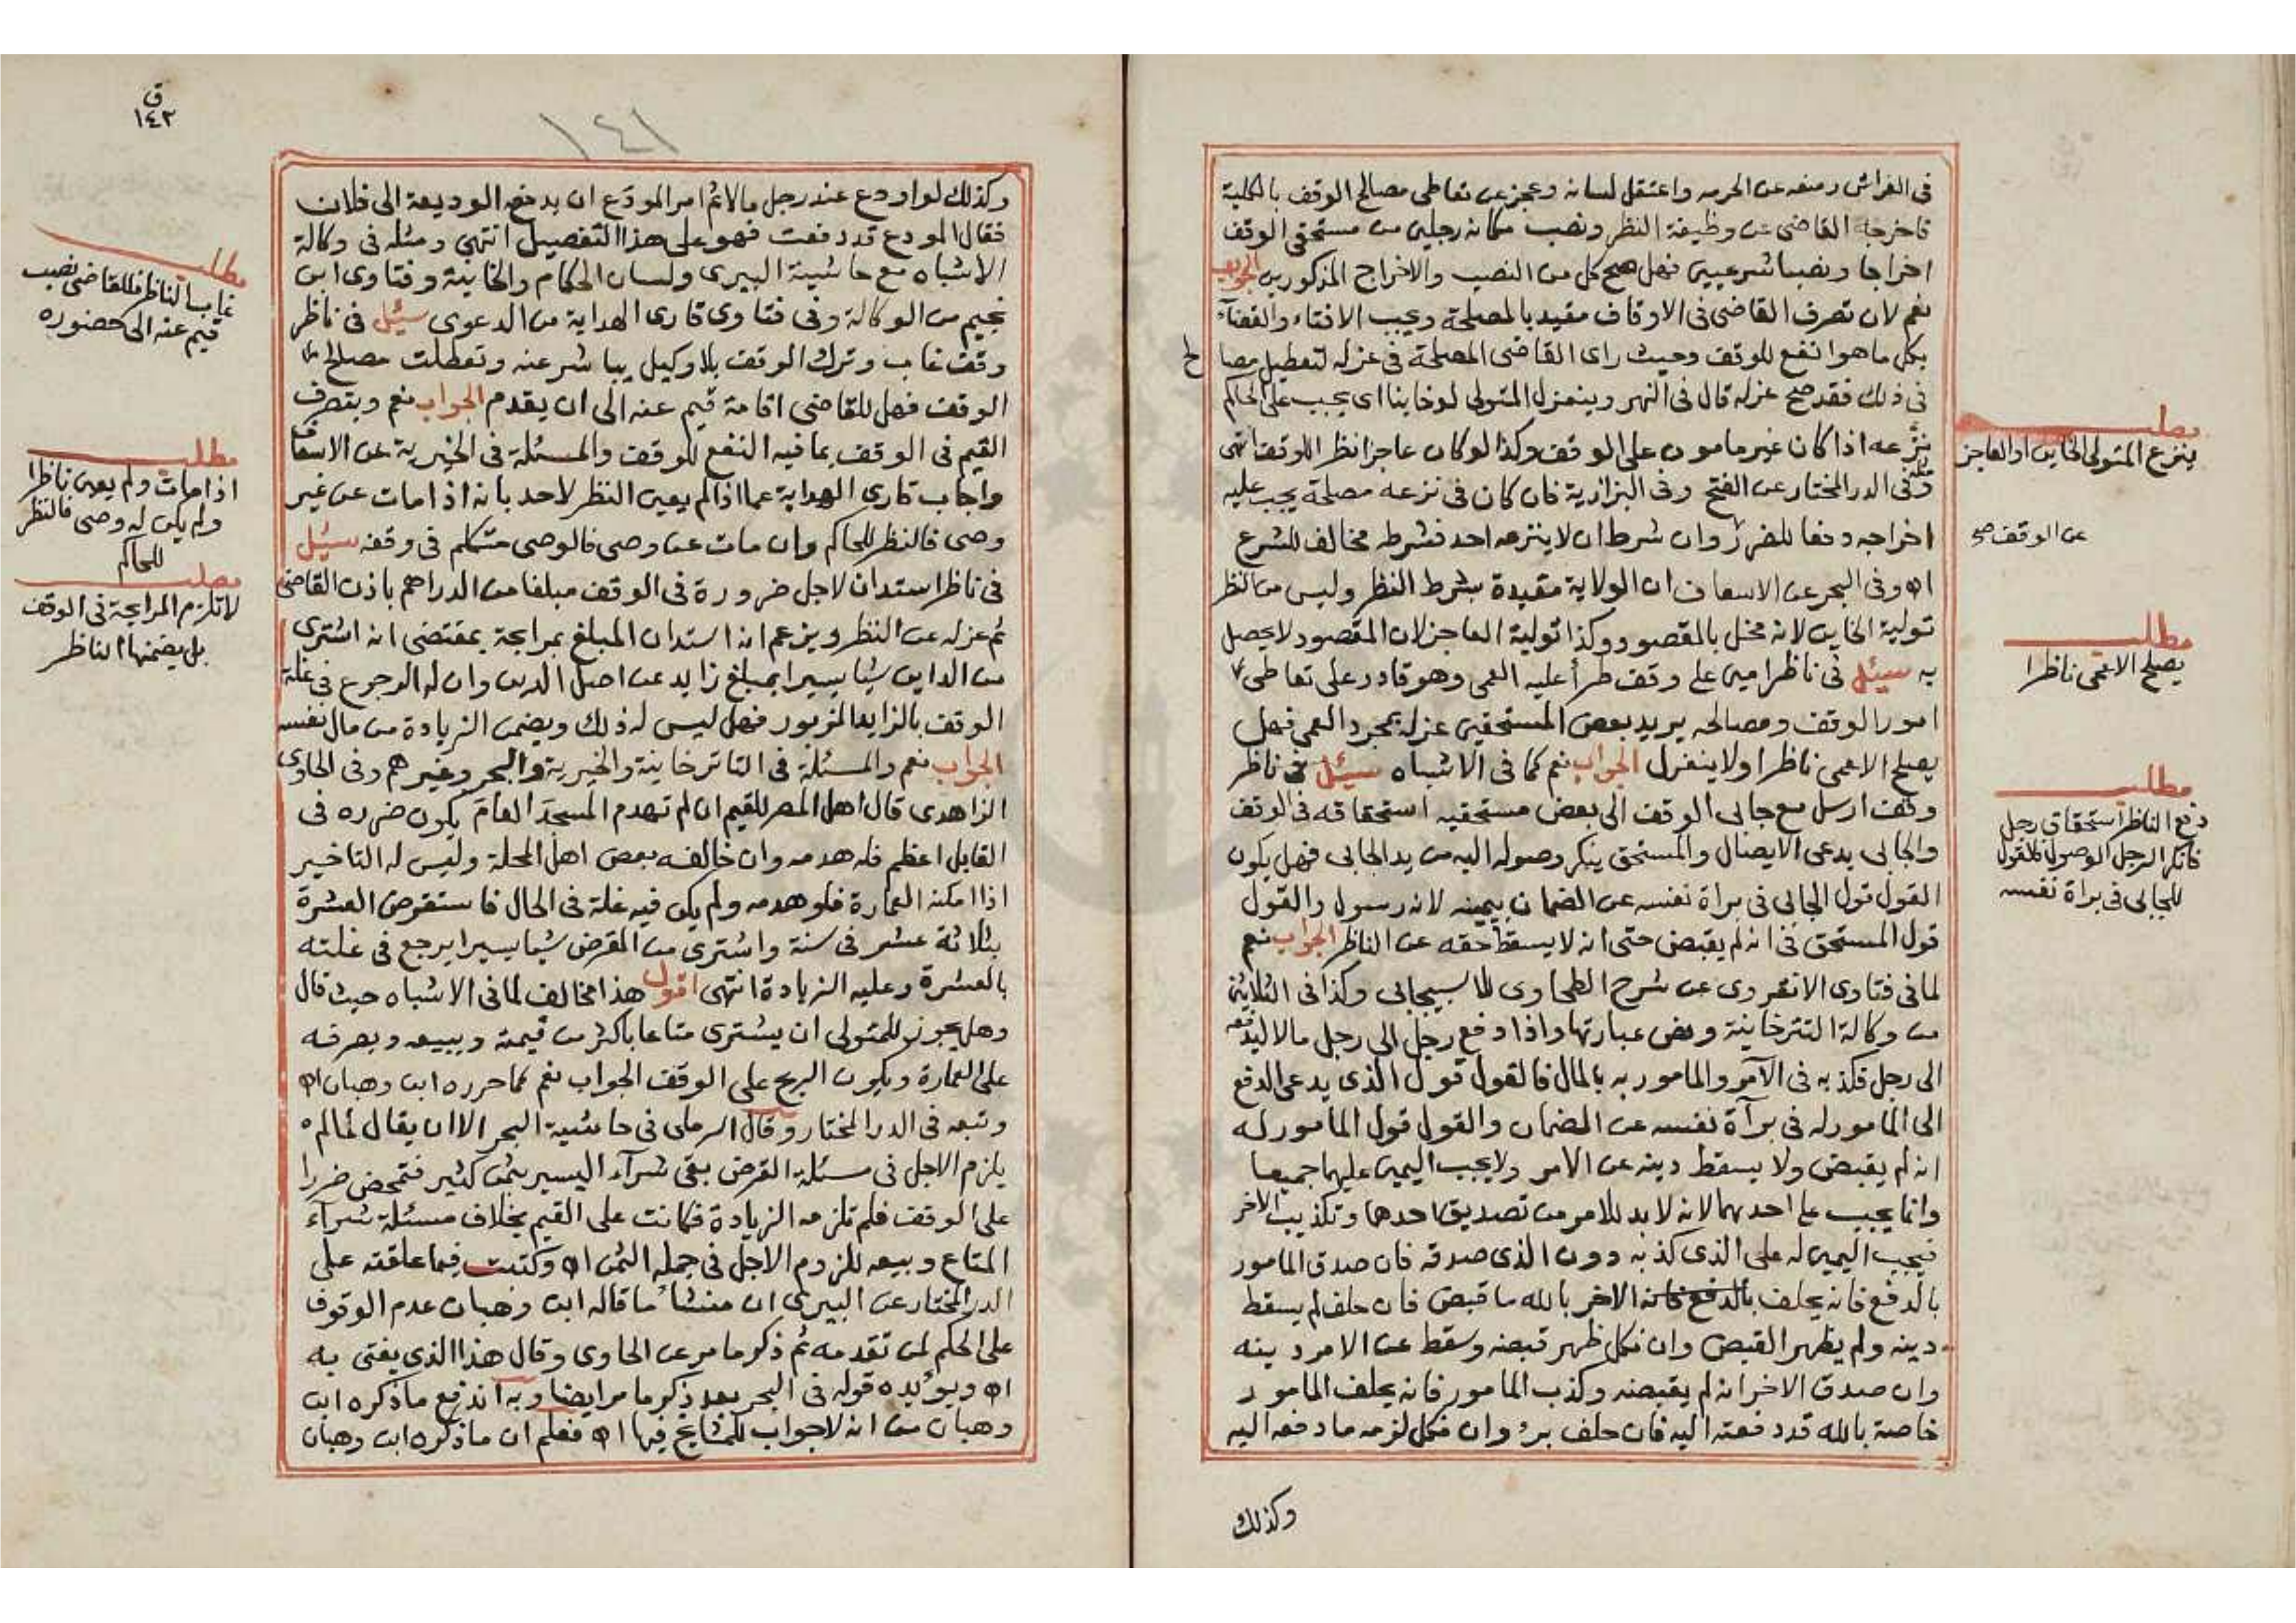 فى الفراش ومنعه عن الحركة واعتقل لسانه وعجز عن تعاطى مصالح الوقف بالكلية
فاخرجه القاضى عن وظيفة النظر ونصب مكانه رجلين من مستحقى الوقف
اخراجا ونصبا شرعيين فهل صح كل من النصب والاخراج المذكورين الجواب
نعم لان تصرف القاضى فى الاوقاف مقيد بالمصلحة ويجب الافتاء والقضآء
بكل ما هو انفع للوقف وحيث راى القاضى المصلحة فى عزله لتعطيل مصا
لح
فى ذلك فقد صح عزله قال فى النهر وينعزل المتولى لو خاينا اى يجب على الحاكم
نزعه اذا كان غير مامون على الوقف وكذا لو كان عاجزا نظر اللوقف انتهى
ومثله فى الدر المختار عن الفتح وفى البزازية فان كان فى نزعه مصلحة يجب عليه
اخراجه دفعا للضرر وان شرط ان لا ينزعه احد فشرطه مخالف للشرع
اه وفى البحر عن الاسعاف ان الولاية مقيدة بشرط النظر وليس من النظر
تولية الخاين لانه مخل بالمقصود وكذا تولية العاجز لان المقصود لا يحصل
به سيئل فى ناظر امين على وقف طرأ عليه العمى وهو قادر على تعاطى
امور الوقف ومصالحه يريد بعض المستحقين عزله بمجرد العمى فهل
يصلح الاعمى ناظرا ولا ينعزل الجواب نعم كما فى الاشباه سيئل فى ناظر
وقف ارسل مع جابى الوقف الى بعض مستحقيه استحقاقه فى الوقف
والجابى يدعى الايصال والمستحق ينكر وصوله اليه من يد الجابى فهل يكون
القول قول الجابى فى براة نفسه عن الضمان بيمينه لانه رسول والقول
قول المستحق فى انه لم يقبض حتى انه لا يسقط حقه عن الناظر الجواب نعم
لما فى فتاوى الانقروى عن شرح الطحاوى للاسبيجابى وكذا فى الثلاثين
من وكالة التترخانية ونص عبارتها واذا دفع رجل الى رجل مالا ليدفعه
الى رجل فكذبه فى الآمر والمامور به بالمال فالقول قول الذى يدعى الدفع
الى المامور له فى برآة نفسه عن الضمان والقول قول المامور له
انه لم يقبض ولا يسقط دينه عن الامر ولا يجب اليمين عليهما جميعا
وانما يجب على احدهما لانه لا بد للامر من تصديق احدهما وتكذيب الاخر
فيجب اليمين له على الذى كذبه دون الذى صدقه فان صدق المامور
بالدفع فانه يحلف بالدفع فانه الاخر بالله ما قبض فان حلف لم يسقط
دينه ولم يظهر القبض وان نكل ظهر قبضه وسقط عن الامر دينه
وان صدق الاخر انه لم يقبضه وكذب المامور فانه يحلف المامور
خاصة بالله قد دفعته اليه فان حلف برئ وان نكل لزمه ما دفعه اليه
وكذلك
مطلب
ينزع المتولى الخاين او العاجز
عن الوقف صح
مطلب
يصلح الاعمى ناظرا
مطلب
دفع الناظر استحقاق رجل
فانكر الرجل الوصول فالقول
للجابى فى براة نفسه
ق
١٤٢
١٤١
وكذلك لو اودع عند رجل مالا ثم امر المودَع ان يدفع الوديعة الى فلان
فقال المودع قد دفعت فهو على هذا التفصيل انتهى ومثله فى وكالة
الاشباه مع حاشية البيرى ولسان الحكام والخانية وفتاوى ابن
نجيم من الوكالة وفى فتاوى قارى الهداية من الدعوى سيئل فى ناظر
وقف غاب وترك الوقف بلا وكيل يباشر عنه وتعطلت مصالح
الوقف فهل للقاضى اقامة قيم عنه الى ان يقدم الجواب نعم ويتصرف
القيم فى الوقف بما فيه النفع للوقف والمسئلة فى الخيرية عن الاسعاف
واجاب قارى الهداية عما اذا لم يعين النظر لاحد بانه اذا مات عن غير
وصى فالنظر للحاكم وان مات عن وصى فالوصى متكلم فى وقفه سيئل
فى ناظر استدان لاجل ضرورة فى الوقف مبلغا من الدراهم باذن القاضى
ثم عزله عن النظر ويزعم انه استدان المبلغ بمرابحة بمقتضى انه اشترى
من الداين شيا يسيرا بمبلغ زايد عن اصل الدين وان له الرجوع فى غلة
الوقف بالزايد المزبور فهل ليس له ذلك ويضمن الزيادة من مال نفسه
الجواب نعم والمسئلة فى التاترخانية والخيرية والبحر وغيرهم وفى الحاوى
الزاهدى قال اهل المصر للقيم ان لم تهدم المسجد العام يكون ضرره فى
القابل اعظم فله هدمه وان خالفه بعض اهل المحلة وليس له التاخير
اذا امكنه العمارة فلو هدمه ولم يكن فيه غلة فى الحال فاستقرض العشرة
بثلاثة عشر فى سنة واشترى من المقرض شيا يسيرا يرجع فى غلته
بالعشرة وعليه الزيادة انتهى اقول هذا مخالف لما فى الاشباه حيث قال
وهل يجوز للمتولى ان يشترى متاعا باكثر من قيمته ويبيعه ويصرفه
على العمارة ويكون الربح على الوقف الجواب نعم كما حرره ابن وهبان اه
وتبعه فى الدر المختار وقال الرملى فى حاشية البحر الا ان يقال لما لم
يلزم الاجل فى مسئلة القرض بقى شرآء اليسير بثمن كثير فتمحض ضررا
على الوقف فلم تلزمه الزيادة فكانت على القيم بخلاف مسئلة شرآء
المتاع وبيعه للزوم الاجل فى جملة الثمن اه وكتبت فيما علقته على
الدر المختار عن البيرى ان منشأ ما قاله ابن وهبان عدم الوقوف
على الحكم لمن تقدمه ثم ذكر ما مر عن الحاوى وقال هذا الذى يفتى به
اه ويؤيده قوله فى البحر بعد ذكر ما مر ايضا وبه اندفع ما ذكره ابن
وهبان من انه لا جواب للمشايخ فيها اه فعلم ان ما ذكره ابن وهبان
مطلب
غاب الناظر فللقاضى نصب
قيم عنه الى حضوره
مطلب
اذا مات ولم يعين ناظرا
ولم يكن له وصى فالنظر
للحاكم
مطلب
لا تلزم المرابحة فى الوقف
بل يضمنها الناظر